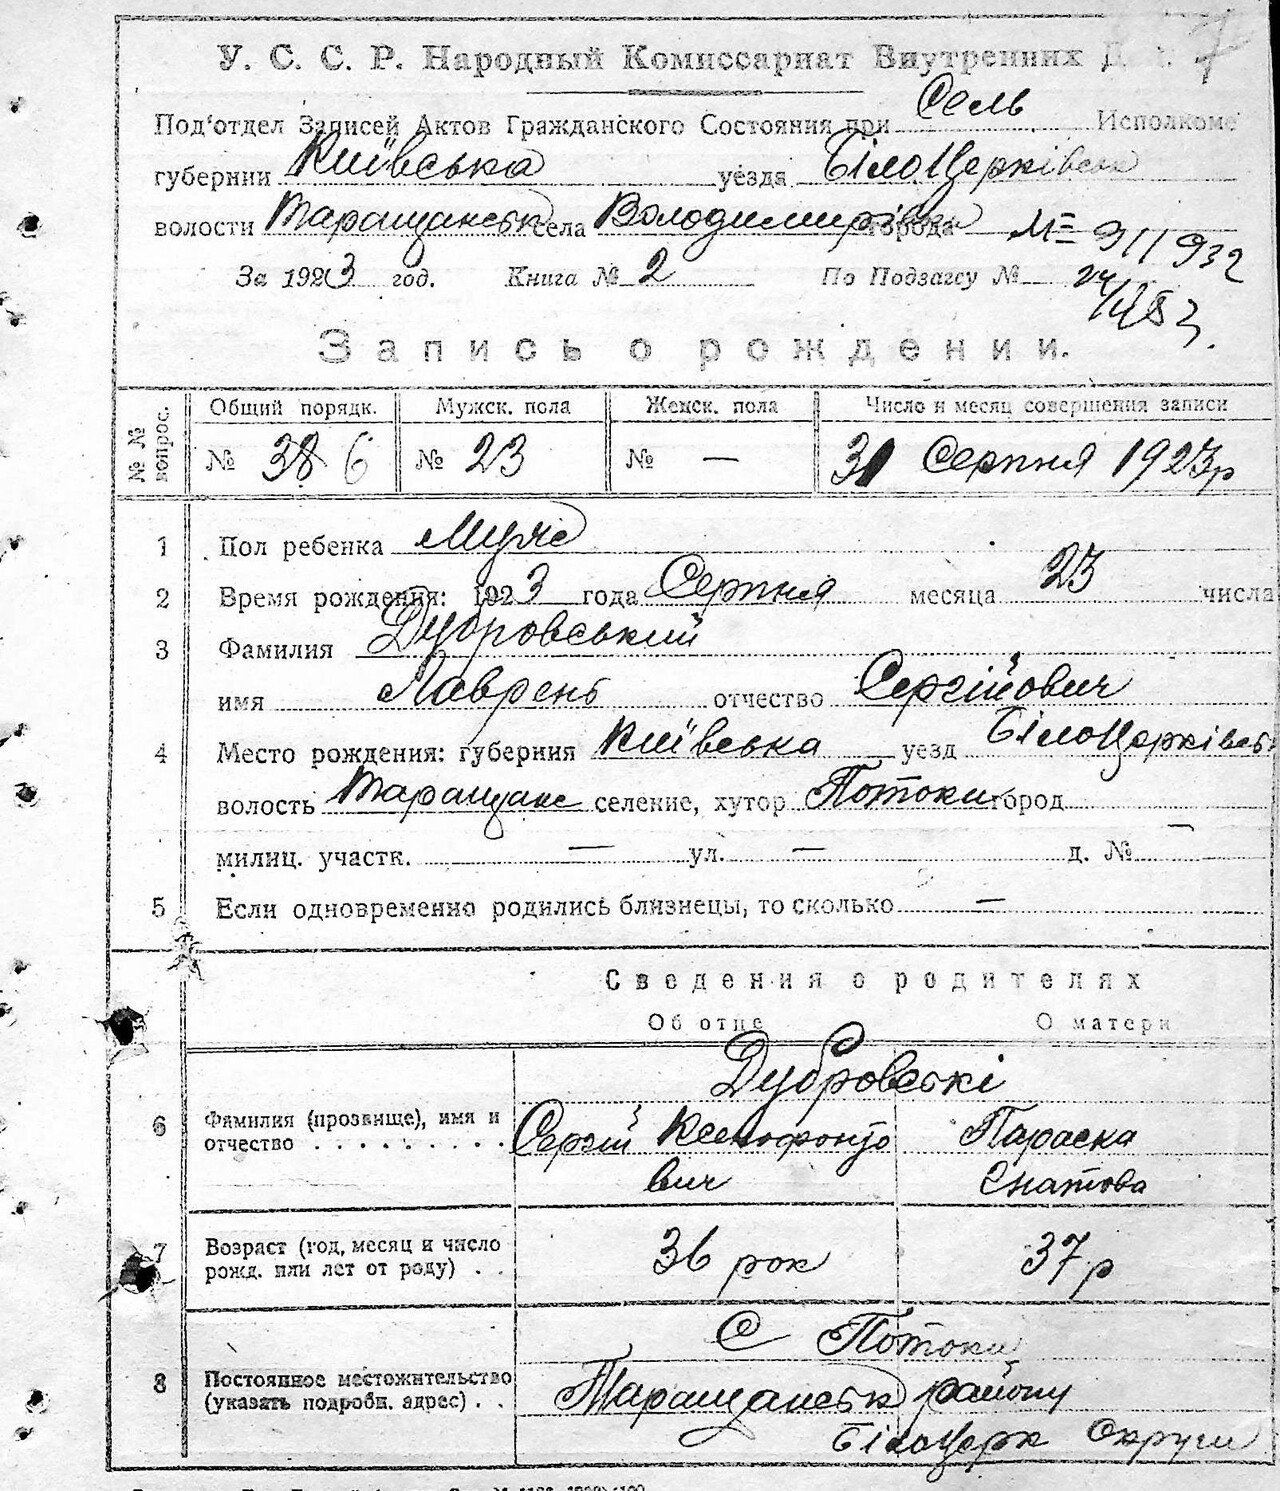 7
У. С. С. Р. Народный Комиссариат Внутренних
Под'отдел Записей Актов Гражданского Состояния при Сель Исполкоме
губернии Київська уезда БілоЦерківськ
волости Таращанськ села Володимирівка города
№ 311932
За 1923 год. Книга № 2 По Подзагсу №
Запись о рождении.
№ № вопрос. Общий порядк. Мужск. пола Женск. пола Число и месяц совершения записи
№ 38 6 № 23 № — 31 Серпня 1923р
1 Пол ребенка Муже
2 Время рождения: 1923 года Серпня месяца 23 числа
3 Фамилия Дубровський
имя Лаврень отчество Сергійович
4 Место рождения: губерния Київська уезд БілоЦерківськ
волость Таращанс селение, хутор Потоки город
милиц. участк. — ул. — д. № —
5 Если одновременно родились близнецы, то сколько —
Сведения о родителях
Об отце О матери
Дубровські
6 Фамилия (прозвище), имя и отчество . . . . . . . . . Сергій Ксенофонто Параска
вич Гнатова
7 Возраст (год, месяц и число рожд. или лет от роду) . . 36 рок 37 р
С Потоки
8 Постоянное местожительство (указать подробн. адрес) . . Таращанськ району
БілоЦерк Округи